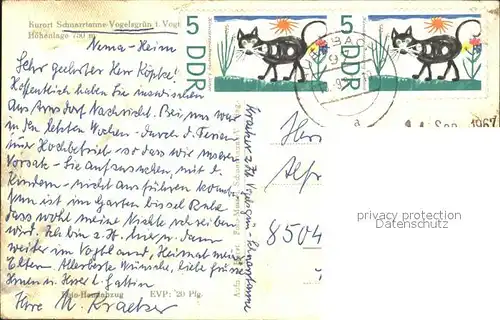 Kurort Schnarrtanne-Vogelsgrün i. Vogt
Höhenlage 750 m
Sehr geehrter Herr Köpke!
Hoffentlich haben Sie inzwischen
aus Arnsdorf Nachricht. Bei uns war
in den letzten Wochen - durch d. Ferien
nur Hochbetrieb - so dass wir unseren
Vorsatz - Sie aufzusuchen mit d.
Kindern - nicht ausführen konnten
Nun ist im Garten bissel Ruhe
dass wohl meine Nichte schreiben
wird. Ich bin z. Zt. hier u. dann
weiter im Vogtland, Heimat meiner
Eltern. Allerbeste Wünsche, liebe Grüsse
Ihnen u. Ihrer l. Gattin
Ihre M.
Handabzug EVP: 20 Pfg.
z. Zt. Vogelsgrün - Schnarrtanne
5
DDR
5
DDR
Sep. 1967
Her
8504
privacy protection
Datenschutz